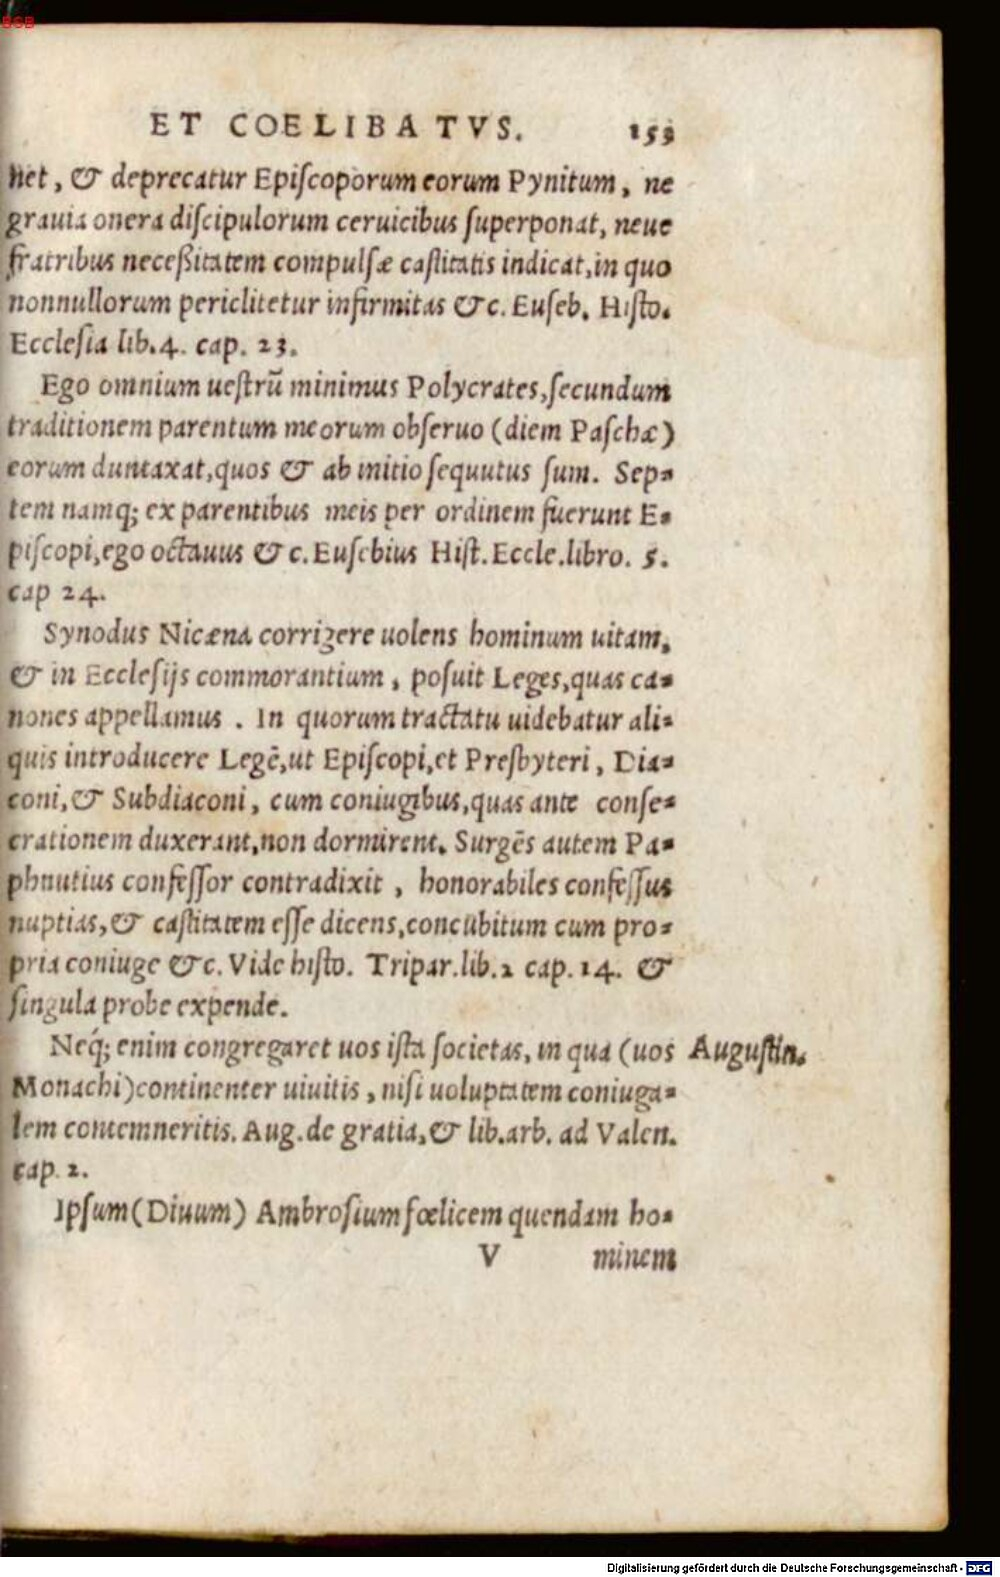 BSB
ET COELIBATVS. 153
net, & deprecatur Episcoporum eorum Pynitum, ne
grauia onera discipulorum ceruicibus superponat, neue
fratribus neceßitatem compulsæ castitatis indicat, in quo
nonnullorum periclitetur infirmitas &c. Euseb. Histo.
Ecclesia lib. 4. cap. 23.
Ego omnium uestrũ minimus Polycrates, secundum
traditionem parentum meorum obseruo (diem Paschæ)
eorum duntaxat, quos & ab initio sequutus sum. Sep-
tem namq; ex parentibus meis per ordinem fuerunt E-
piscopi, ego octauus &c. Eusebius Hist. Eccle. libro. 5.
cap 24.
Synodus Nicæna corrigere uolens hominum uitam,
& in Ecclesijs commorantium, posuit Leges, quas ca-
nones appellamus. In quorum tractatu uidebatur ali-
quis introducere Legẽ, ut Episcopi, et Presbyteri, Dia-
coni, & Subdiaconi, cum coniugibus, quas ante conse-
crationem duxerant, non dormirent. Surgẽs autem Pa-
phnutius confessor contradixit, honorabiles confessus
nuptias, & castitatem esse dicens, concubitum cum pro-
pria coniuge &c. Vide histo. Tripar. lib. 2 cap. 14. &
singula probe expende.
Neq́; enim congregaret uos ista societas, in qua (uos Augustin.
Monachi) continenter uiuitis, nisi uoluptatem coniuga-
lem contemneritis. Aug. de gratia, & lib. arb. ad Valen.
cap. 2.
Ipsum (Diuum) Ambrosium fœlicem quendam ho-
V minem
Digitalisierung gefördert durch die Deutsche Forschungsgemeinschaft - DFG